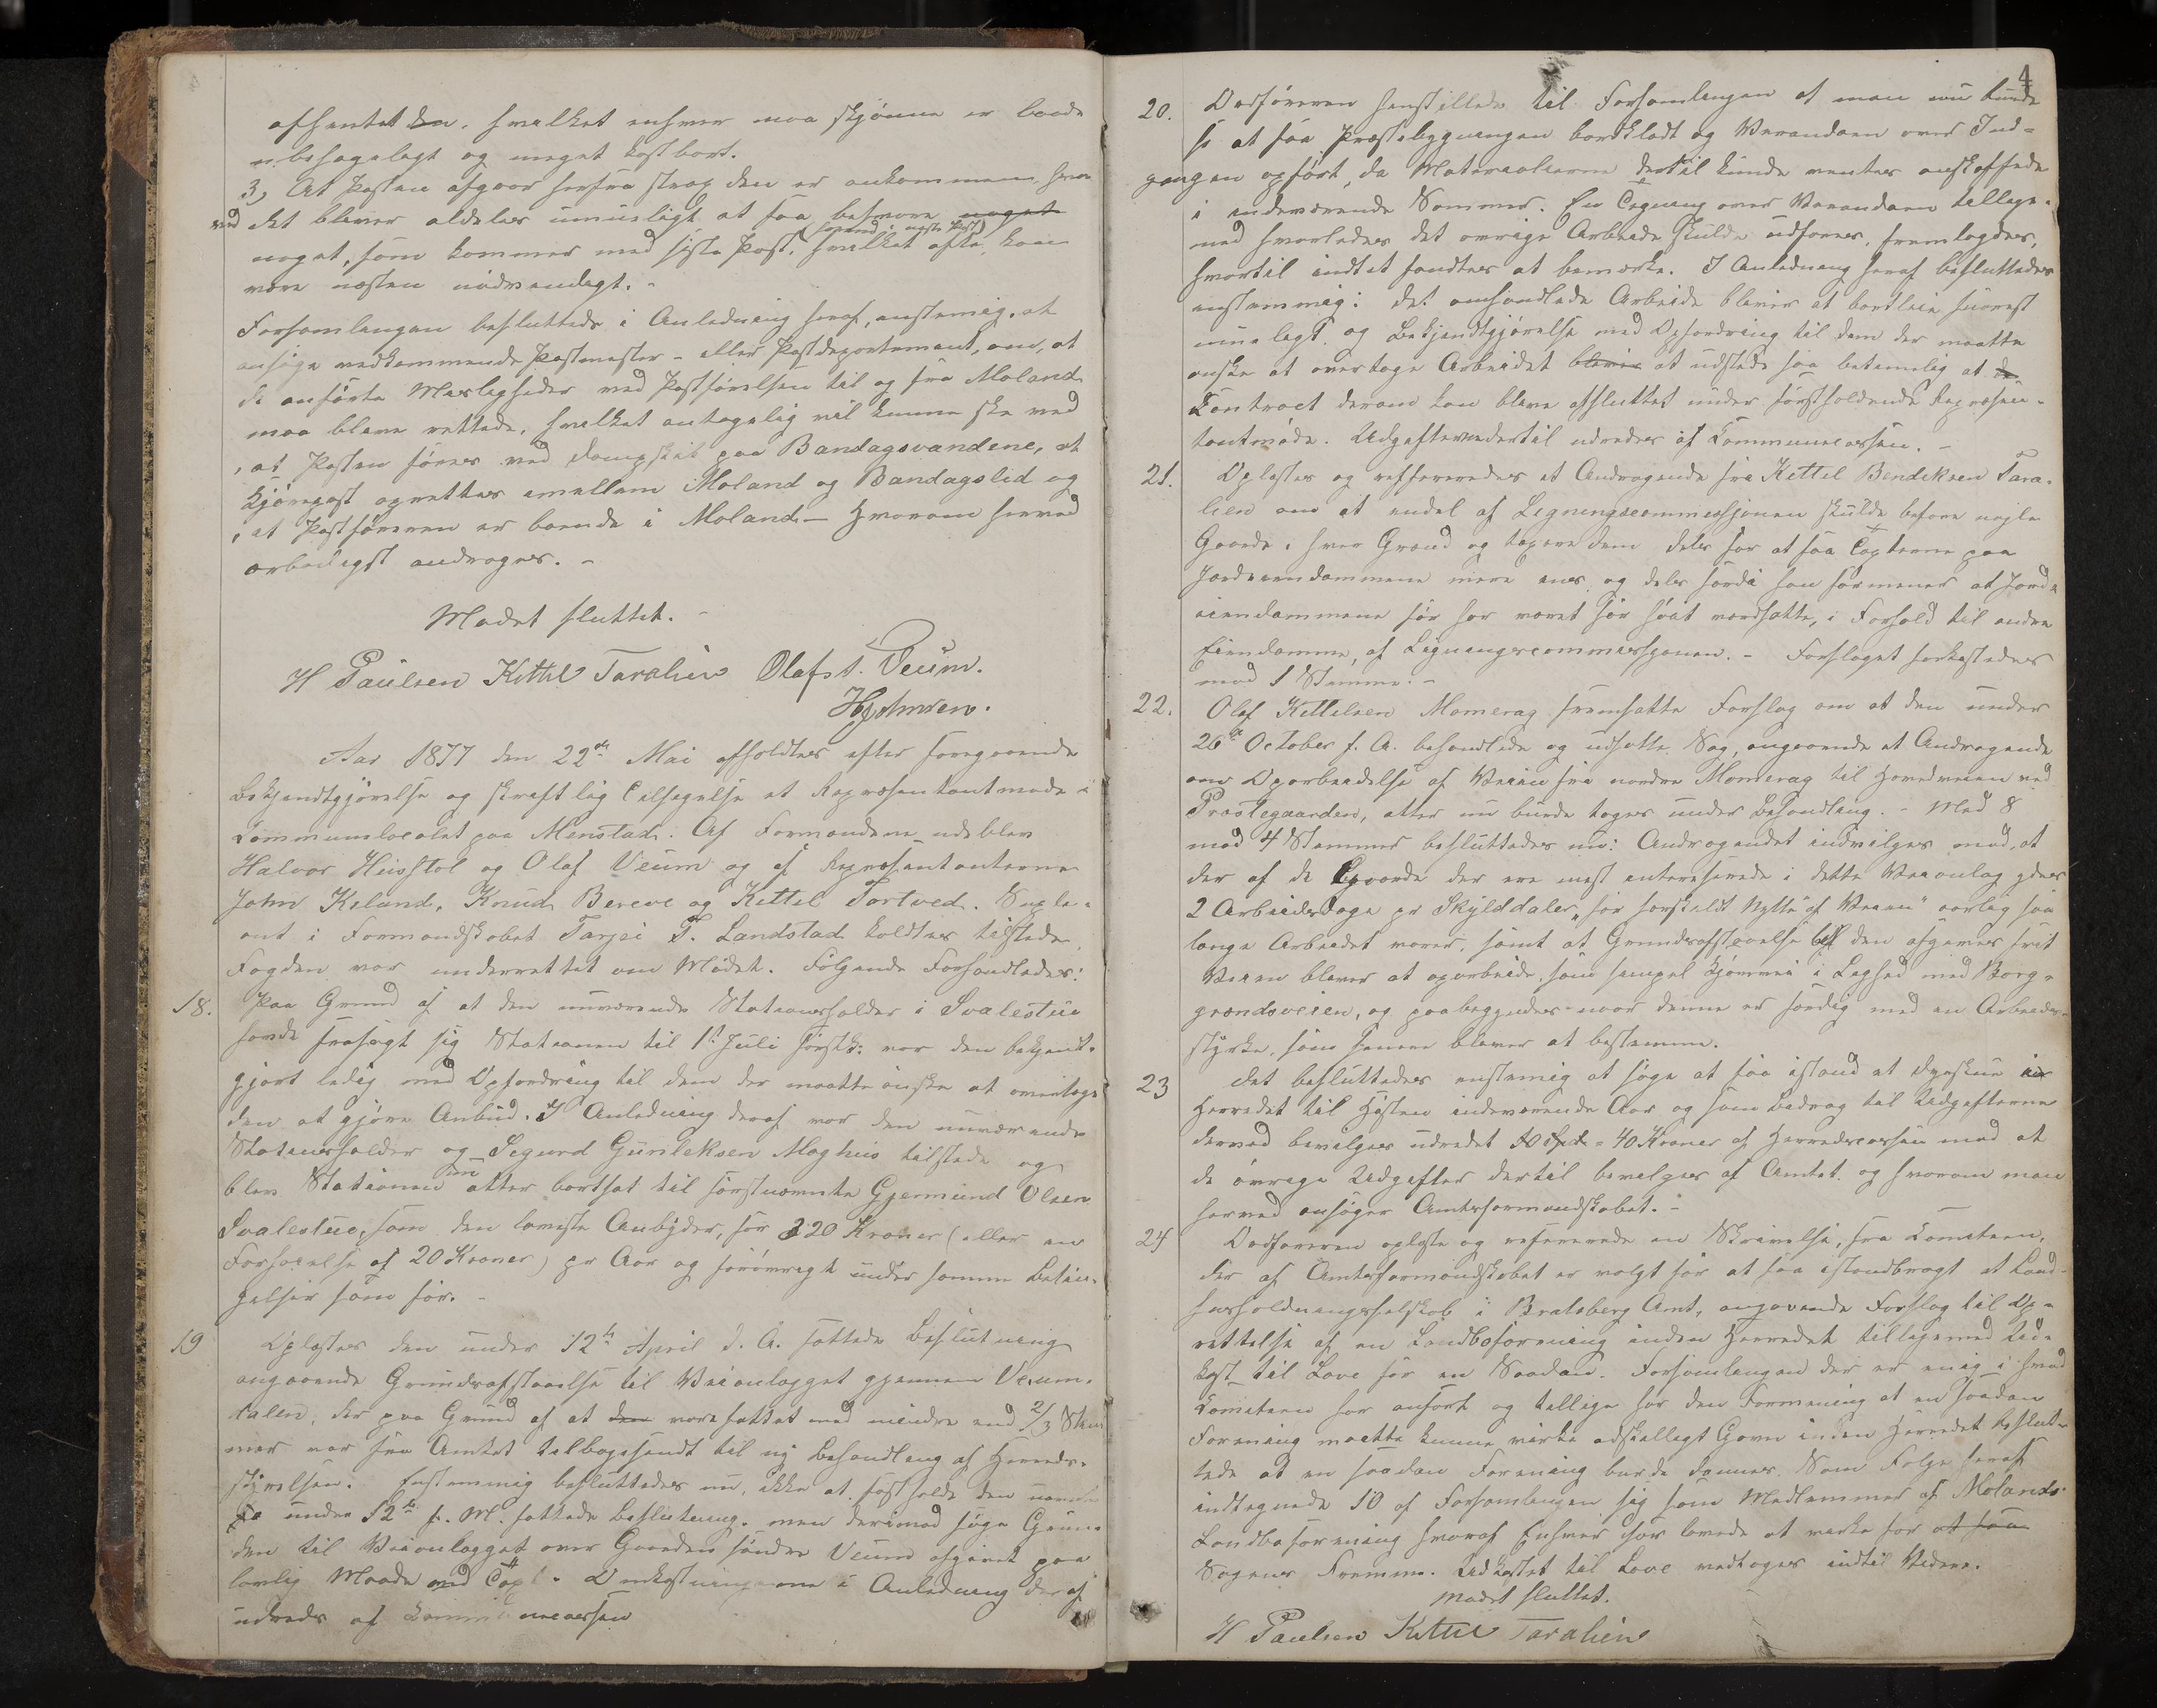 afhentet den, hvilket enhver maa skjønne er baade
ubehageligt og meget kostbart.
3, At Posten afgaar herfra strax den er ankommen, hvor
ved det bliver aldeles umuligt at faa besvare noget
(svared i neste Post)
noget, som kommer med sidste Post, hvilket ofte kan
være næsten nødvendigt. -
Forsamlingen besluttede i Anledning heraf, enstemig, at
ansøge vedkommende Postmester - eller Postdepartement, om, at
de anførte Misligheder ved Postførelsen til og fra Moland
maa blive rettede, hvilket antagelig vil kunne ske ved
, at Posten føres ved Dampskib paa Bandagsvandene, at
Kjørepost oprettes emellem Moland og Bandagslid og
, at Postføreren er boende i Moland - Hvorom herved
ærbødigst andrages. -
Mødet sluttet. -
H Paulsen Kittil Taralien Olaf S. Veum.
HJohnsen.
Aar 1877 den 22de Mai afholdtes efter foregaaende
Bekjendtgjørelse og skriftlig Tilsigelse et Repræsentantmøde i
Kommunelocalet paa Menstad. Af Formændene udeblev
Halvor Huvstol og Olaf Veum og af Repræsentanterne
John Kiland, Knud Bereve og Kittil Tortved. Suple-
ant i Formandskabet Tarjei T. Landstad holdtes tilstede,
Fogden var underrettet om Mødet. Følgende Forhandledes:
18. Paa Grund af at den nuværende Stationsholder i Svalestue
havde frasagt sig Stationen til 1st Juli førstk: var den bekjendt-
gjort ledig med Opfordring til dem der maatte ønske at overtage
den at gjøre Anbud. I Anledning deraf var den nuværende
Stationsholder og Segurd Gunleksen Moghus tilstede og
blev Stationen nu atter bortsat til førstnævnte Gjermund Olsen
Svalestue, som den laveste Anbyder, for 320 Kroner (eller en
Forhøielse af 20 Kroner) pr Aar og forøvrigt under samme Betin-
gelser som før. -
19 Oplæstes den under 12te April d. A. fattede Beslutning
angaaende Grundafstaaelse til Veianlægget gjennem Veum-
dalen, der paa Grund af at den var fattet med mindre end 2/3 Stem
mer var fra Amtet tilbagesendt til ny Behandling af Herreds-
styrelsen. Enstemmig besluttedes nu, ikke at fastholde den nævn
te under 12te f. M. fattede Beslutning, men derimod søge Grun-
den til Veianlægget over Gaarden søndre Veum afgivet paa
lovlig Maade ved Taxt. Omkostningerne i Anledning deraf
udredes af Kommunecassen
4
20. Ordføreren henstillede til Forsamlingen at man nu kunde
se at faa Præstebygningen bordklædt og Verandaen over Ind-
gangen opført, da Materialierne dertil kunde ventes anskaffede
i indeværende Sommer. En Tegning over Verandaen tillige-
med hvorledes det øvrige Arbeide skulde udføres, fremlagdes,
hvortil indtet fandtes at bemærke. I Anledning heraf besluttedes
enstemmig: det omhandlede Arbeide bliver at bortleie snarest
muelegt og Bekjendtgjørelse med Opfordring til dem der maatte
ønske at overtage Arbeidet bliver at udstede saa betimelig at de
Kontract derom kan blive afsluttet under førstholdende Repræsen-
tantmøde. Udgifterne dertil udredes af Kommunecassen. -
21. Oplæstes og refereredes et Andragende fra Kittil Bendiksen Tara-
lien om at endel af Ligningscommissjonen skulde befare nogle
Gaarde i hver Grænd og taxere dem dels for at faa Taxterne paa
Jordeiendommene mere ens og dels fordi han formener at Jord-
eiendommene før har været for høit værdsatte, i Forhold til andre
Eiendomme, af Ligningscommissjonen. - Forslaget forkastedes
mod 1 Stemme. -
22. Olaf Kittilsen Momerag fremsatte Forslag om at den under
26de October f. A. behandlede og udsatte Sag, angaaende et Andragende
om Oparbeidelse af Veien fra nordre Momerag til Hovedveien ved
Præstegaarden, atter nu burde tages under Behandling. - Med 8
mod 4 Stemmer besluttedes nu: Andragendet indvilges med, at
der af de Gaarde der ere mest interesserede i dette Veianlæg ydes
2 Arbeidsdage pr Skylddaler "for særskilt Nytte af Veien" aarlig saa
længe Arbeidet varer, samt at Grundafstaaelse til den afgives frit
Veien bliver at oparbeide som simpel Kjørevei i Lighed med Borg-
grændsveien, og paabegyndes naar denne er færdig med en Arbeids-
styrke, som senere bliver at bestemme.
23 Det besluttedes enstemig at søge at faa istand et Dyrskue in
Herredet til Høsten indeværende Aar og som Bedrag til Udgifterne
derved bevilges udredet 10 Spd. = 40 Kroner af Herredscassen med at
de øvrige Udgifter dertil bevilges af Amtet og hvorom man
herved ansøger Amtsformandskabet. -
24 Ordføreren oplæste og refererede en Skrivelse, fra Komiteen,
der af Amtsformandskabet er valgt for at faa istandbragt et Land-
husholdningsselskab i Bratsberg Amt, angaaende Forslag til Op-
rettelse af en Landboforening inden Herredet tilligemed Ud-
kast til Love for en Saadan. Forsamlingen der er enig i hvad
Komiteen har anført og tillige har den Formening at en saadan
Forening maatte kunne virke adskilligt Gavn inden Herredet beslut-
tede at en saadan Forening burde dannes. Som Følge heraf
indtegnede 10 af Forsamlingen sig som Medlemmer af Molands
Landboforening hvoraf Enhver især lovede at virke for at faa
Sagens Fremme. Udkastet til Love vedtoges indtil Videre.
Mødet sluttet.
H Paulsen Kittil Taralien